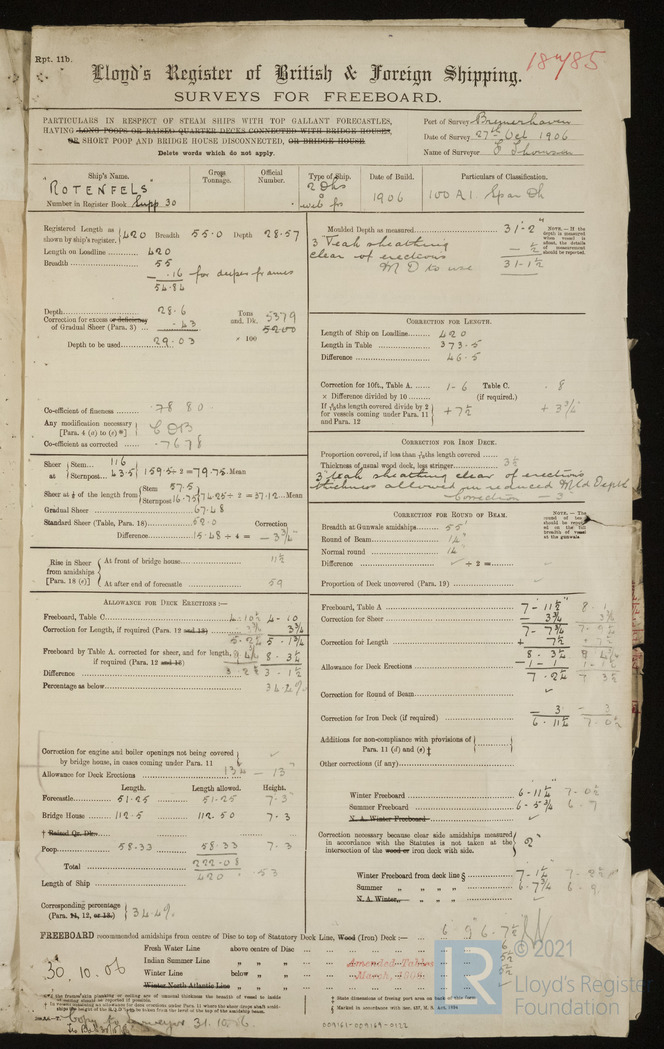 Rpt. 11b.
18785
Lloyd's Register of British & Foreign Shipping.
SURVEYS FOR FREEBOARD.
PARTICULARS IN RESPECT OF STEAM SHIPS WITH TOP GALLANT FORECASTLES,
HAVING LONG POOPS OR RAISED QUARTER DECKS CONNECTED WITH BRIDGE HOUSES,
OR SHORT POOP AND BRIDGE HOUSE DISCONNECTED, OR BRIDGE HOUSE
Delete words which do not apply.
Port of Survey Bremerhaven
Date of Survey 27th Oct 1906
Name of Surveyor E Thomson
Ship's Name. Gross Tonnage. Official Number. Type of Ship. Date of Build. Particulars of Classification.
"ROTENFELS" 2 Dks web frs 1906 100 A1. Spar Dk
Number in Register Book Supp. 30
Registered Length as shown by ship's register. 420 Breadth 55.0 Depth 28.57
Length on Loadline 420
Breadth 55
- .16 for deeper frames
54.84
Depth 28.6
Correction for excess or deficiency of Gradual Sheer (Para. 3) - .43
Tons und. Dk. 5379
5200
Depth to be used 29.03 × 100
Co-efficient of fineness 78 80
Any modification necessary [Para. 4 (a) to (e)*] CDB
Co-efficient as corrected .7678
Sheer at Stem 116
Sternpost 43.5 159.5 ÷ 2 = 79.75 Mean
Sheer at 1/8 of the length from Stem 57.5
Sternpost 16.75 74.25 ÷ 2 = 37.12 Mean
Gradual Sheer 67.48
Standard Sheer (Table, Para. 18) 52.0 Correction
Difference 15.48 ÷ 4 = - 3 3/4
Rise in Sheer from amidships [Para. 18 (e)] At front of bridge house 11 1/2
At after end of forecastle 59
ALLOWANCE FOR DECK ERECTIONS:—
Freeboard, Table C 4-10 1/2 4-10
Correction for Length, if required (Para. 12 and 13) 3 3/4 3 3/4
5-2 1/4 5-1 3/4
Freeboard by Table A. corrected for sheer, and for length, if required (Para. 12 and 13) 8-3 1/4
Difference 3-2 1/2 3-1 1/2
Percentage as below 34.4%
Correction for engine and boiler openings not being covered by bridge house, in cases coming under Para. 11
Allowance for Deck Erections 13 1/4 - 13"
Length. Length allowed. Height.
Forecastle 51.25 51.25 7.3
Bridge House 112.5 112.50 7.3
† Raised Qr. Dk.
Poop 58.33 58.33 7.3
Total 222.08
Length of Ship 420 .53
Corresponding percentage (Para. 11, 12, or 13.) 34.4%
Moulded Depth as measured 31-2"
- 1/2
31-1 1/2
3" Teak sheathing
clear of erections
M D to use
NOTE.—If the depth is measured when vessel is afloat, the details of measurement should be reported.
CORRECTION FOR LENGTH.
Length of Ship on Loadline 420
Length in Table 373.5
Difference 46.5
Correction for 10ft., Table A. 1-6 Table C. .8
× Difference divided by 10 (if required.)
If 6/10ths length covered divide by 2 for vessels coming under Para. 11 and Para. 12 + 7 1/2 + 3 3/4
CORRECTION FOR IRON DECK.
Proportion covered, if less than 7/10ths length covered
Thickness of usual wood deck, less stringer 3 1/2
3" teak sheathing clear of erections
thickness allowed in reduced Mld Depth
Correction - 3
CORRECTION FOR ROUND OF BEAM.
Breadth at Gunwale amidships 55'
Round of Beam 14"
Normal round 14
Difference ÷ 2 =
Proportion of Deck uncovered (Para. 19)
Freeboard, Table A 7-11 1/2" 8.1
Correction for Sheer - 3 3/4
7-7 3/4
Correction for Length + 7 1/2
8.3 1/4
Allowance for Deck Erections - 1-1
7-2 1/4
Correction for Round of Beam
Correction for Iron Deck (if required) - 3
6.11 1/4 7.0 1/2
Additions for non-compliance with provisions of Para. 11 (d) and (e) ‡
Other corrections (if any)
Winter Freeboard 6-11 1/4 7-0 1/2
Summer Freeboard 6-5 3/4 6.7
N. A. Winter Freeboard
Correction necessary because clear side amidships measured in accordance with the Statutes is not taken at the intersection of the wood or iron deck with side. 2"
Winter Freeboard from deck line § 7-1 1/4
Summer " " " " 6-7 3/4 6.9
N. A. Winter " " " "
FREEBOARD recommended amidships from centre of Disc to top of Statutory Deck Line, Wood (Iron) Deck:—
Fresh Water Line above centre of Disc
Indian Summer Line " " "
Winter Line below " "
Winter North Atlantic Line " " "
30.10.06
Amended Tables
March, 1906.
‡ State dimensions of freeing port area on back of this form.
Copy to surveyor 31.10.06
009161-009169-0122
LR
© 2021
Lloyd's Register
Foundation